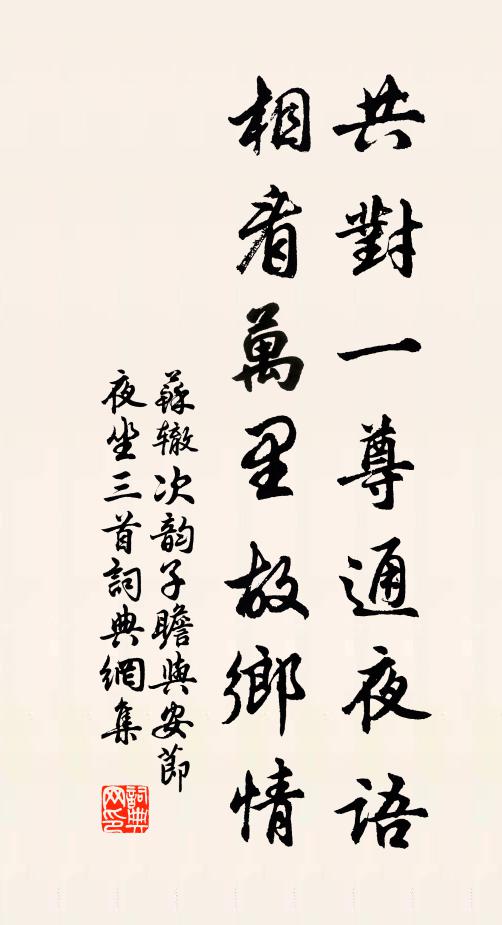 共對一尊通夜语
相看萬里故鄉情
蘇辙次韵子瞻與安節
夜坐三首詞典網集
詞典网印